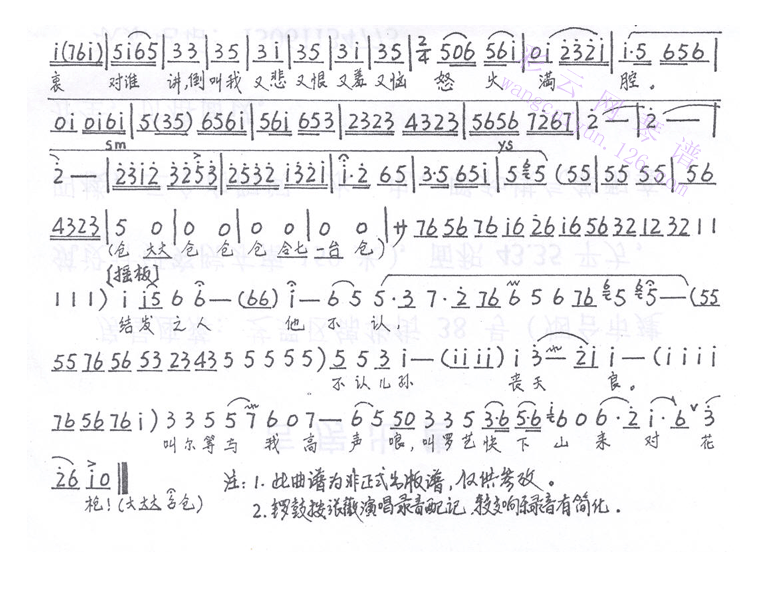 i(76i)|5i65|33|35|3i|35|3i|35|2/4 506 56i|0i 232i|i·5 656|
衷 对谁 讲,倒叫我 又悲又恨又羞又恼 怒 火 满 腔。
0i 0i6i|5(35) 656i|56i 653|2323 4323|5656 7267|2 —|2 —|
sm ys
2 —|23i2 3253|2532 i32i|i·2 65|3·5 65i|5 5 (55|55 55|56
4323|5 0|0 0|0 0|0 0|サ 76 56 76 i6 26 i6 56 32 12 32 1 1
(仓 大大 仓 仓 仓 仓七 一台 仓)
【摇板】
1 1 1) i i5 6 6 — (66) i — 6 5 5·3 7·2 76 6 5 6 76 5 5 — (55
结发之人 他不认,
55 76 56 53 23 43 5 5 5 5 5) 5 5 3 i — (ii ii) i 3 2i i — (i i i i
不认儿孙 丧天 良。
76 56 76 i) 3 3 5 5 7 6 0 7 — 6 5 50 3 3 5 3·6 5·6 6 0 6·2 i·6 3
叫尔等与我高声喊,叫罗艺快下山来对花
26 i0
枪!(大大大 仓)
注:1.此曲谱为非正式出版谱,仅供参改。
2.锣鼓按张徽演唱录音配记,较录音有简化。
wangcaiyun.126.com